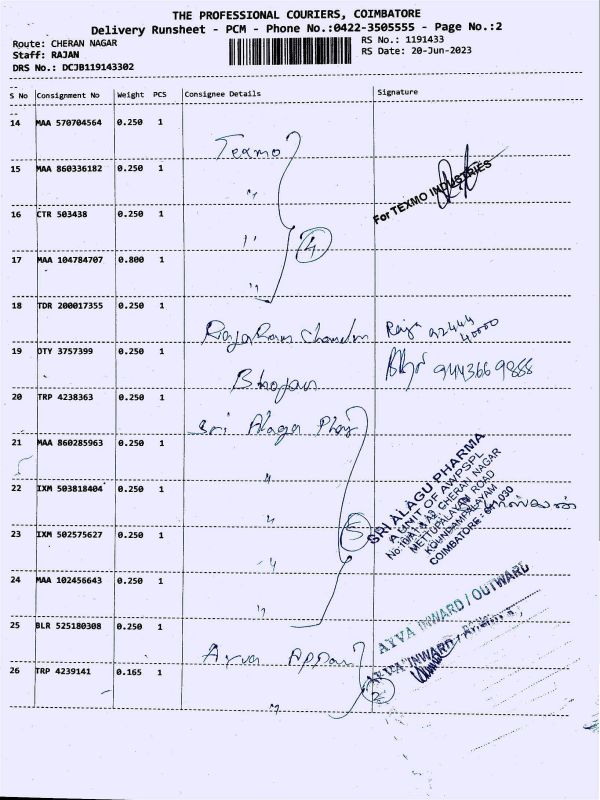 THE PROFESSIONAL COURIERS, COIMBATORE
Delivery Runsheet - PCM - Phone No.:0422-3505555 - Page No.:2
Route: CHERAN NAGAR
RS No.: 1191433
Staff: RAJAN
RS Date: 20-Jun-2023
DRS No.: DCJB119143302
S No Consignment No Weight PCS Consignee Details Signature
14 MAA 570704564 0.250 1
Texmo
15 MAA 860336182 0.250 1
"
For TEXMO INDUSTRIES
16 CTR 503438 0.250 1
"
4
17 MAA 104784707 0.800 1
"
18 TDR 200017355 0.250 1
Raja 92444
40000
19 OTY 3757399 0.250 1
9443669888
20 TRP 4238363 0.250 1
Sri Alagu
21 MAA 860285963 0.250 1
"
SRI ALAGU PHARMA
A UNIT OF AWPSPL
CHERAN NAGAR
METTUPALAYAM ROAD
KOUNDAMPALAYAM
COIMBATORE
22 IXM 503818404 0.250 1
"
5
23 IXM 502575627 0.250 1
"
24 MAA 102456643 0.250 1
"
25 BLR 525180308 0.250 1
AYVA INWARD / OUTWARD
AYVA INWARD /
26 TRP 4239141 0.165 1
2
"